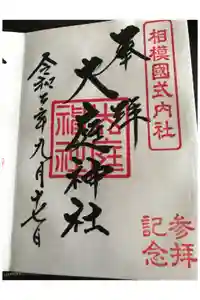 相模國式内社
奉拝
大庭神社
大庭神社
令和七年九月十七日
参拝
記念